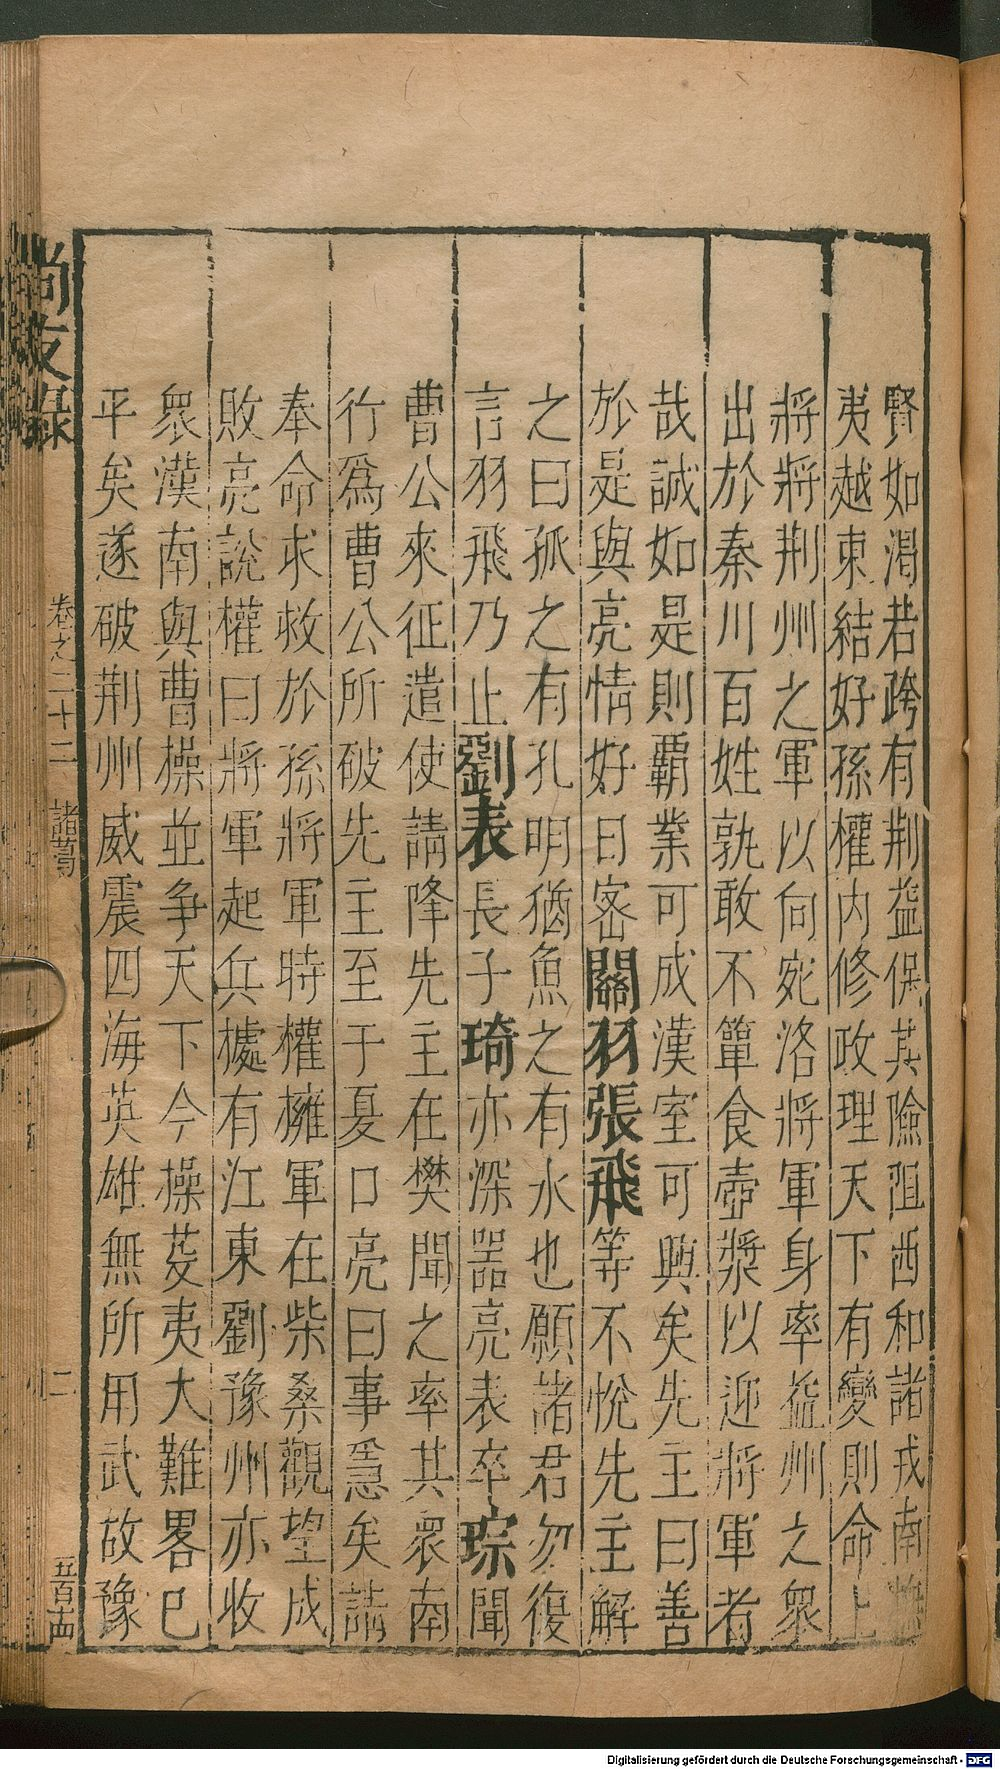 賢如渴若跨有荆益保其險阻西和諸戎南撫
夷越東結好孫權内修政理天下有變則命上
將將荆州之軍以向宛洛將軍身率益州之眾
出於秦川百姓孰敢不簞食壺漿以迎將軍者
哉誠如是則霸業可成漢室可興矣先主曰善
於是與亮情好日密關羽張飛等不悅先主解
之曰孤之有孔明猶魚之有水也願諸君勿復
言羽飛乃止劉表長子琦亦深器亮表卒琮聞
曹公來征遣使請降先主在樊聞之率其衆南
行爲曹公所破先主至于夏口亮曰事急矣請
奉命求救於孫將軍時權擁軍在柴桑觀望成
敗亮說權曰將軍起兵據有江東劉豫州亦收
衆漢南與曹操並争天下今操芟夷大難畧已
平矣遂破荆州威震四海英雄無所用武故豫
尚友錄 卷之二十二 諸葛 二 五百十四
Digitalisierung gefördert durch die Deutsche Forschungsgemeinschaft - DFG